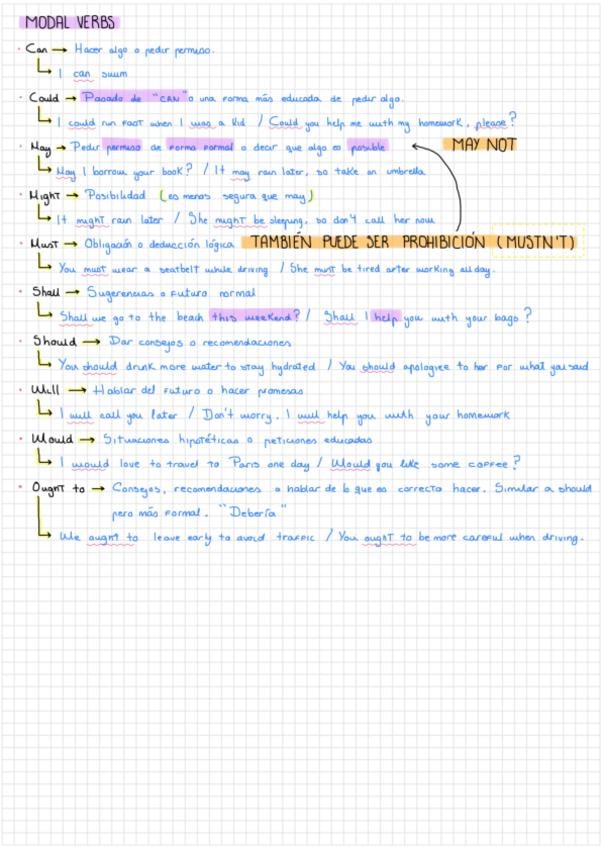 MODAL VERBS
· Can → Hacer algo o pedir permiso.
I can swim
Could → Pasado de "CAN" o una forma más educada de pedir algo.
I could run fast when I was a kid / Could you help me with my homework, please?
· May → Pedir permiso de forma formal o decir que algo es posible MAY NOT
May I borrow your book? / It may rain later, so take an umbrella
· Might → Posibilidad (es menos segura que may)
It might rain later / She might be sleeping, so don't call her now
· Must → Obligación o deducción lógica TAMBIÉN PUEDE SER PROHIBICIÓN (MUSTN'T)
You must wear a seatbelt while driving / She must be tired after working all day.
· Shall → Sugerencias o futuro normal
Shall we go to the beach this weekend? / Shall I help you with your bags?
· Should → Dar consejos o recomendaciones
You should drink more water to stay hydrated / You should apologise to her for what you said
· Will → Hablar del futuro o hacer promesas
I will call you later / Don't worry, I will help you with your homework
· Would → Situaciones hipotéticas o peticiones educadas
I would love to travel to Paris one day / Would you like some coffee?
· Ought to → Consejos, recomendaciones o hablar de lo que es correcto hacer. Similar a should
pero más formal. "Debería"
We ought to leave early to avoid traffic / You ought to be more careful when driving.